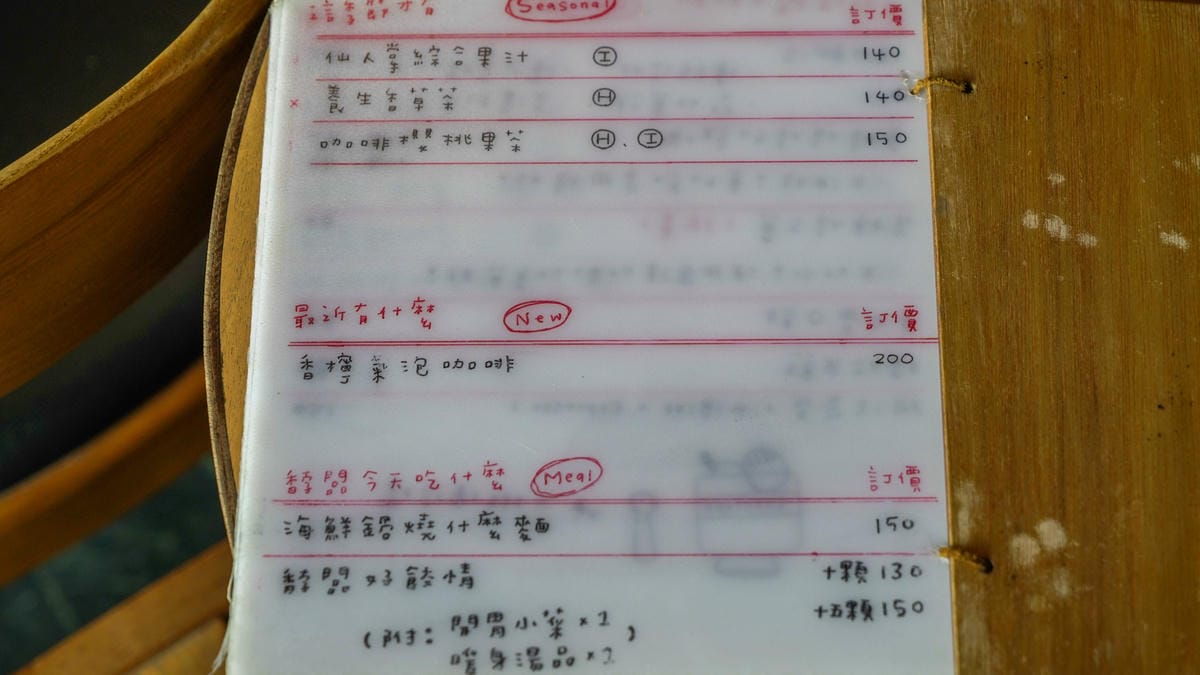 Seasonal 訂價
仙人掌綜合果汁 Ⓘ 140
× 養生香草茶 Ⓗ 140
咖啡櫻桃果茶 Ⓗ、Ⓘ 150
最近有什麼 New 訂價
香檸氣泡咖啡 200
今天吃什麼 Meal 訂價
海鮮鍋燒什麼麵 150
好餃情 十顆 130
十五顆 150
(附: 開胃小菜×1
暖身湯品×1 )